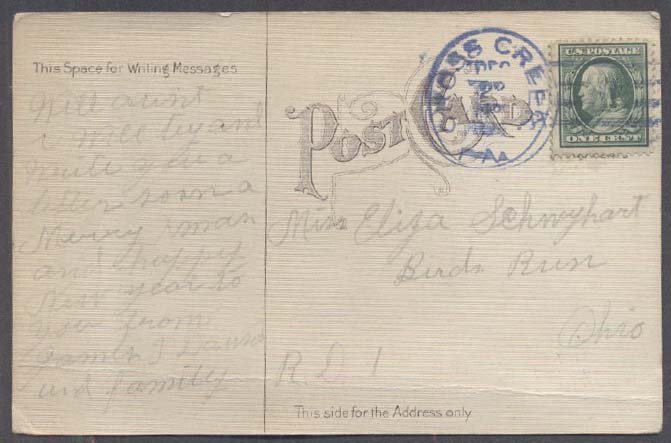 This Space for Writing Messages
POST CARD
CROSS CREEK
PA.
U.S. POSTAGE
ONE CENT
Well aunt
i will try and
write you a
letter soon a
Merry xmas
and happy
New year to
you from
James
and family
Miss Eliza Schwyhart
Birds Run
Ohio
R. D. 1
This side for the Address only